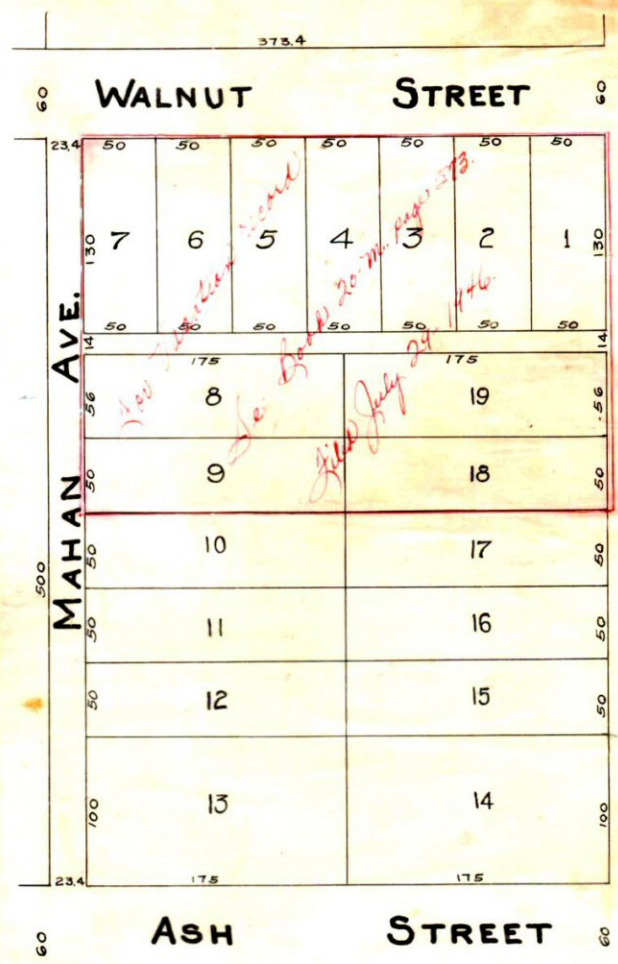 373.4
60 WALNUT STREET 60
23.4 50 50 50 50 50 50 50
130 7 6 5 4 3 2 1 130
50 50 50 50 50 50 50
14 14
175 175
56 8 19 56
50 9 18 50
50 10 17 50
50 11 16 50
50 12 15 50
100 13 14 100
23.4 175 175
500
MAHAN AVE.
60 ASH STREET 60
For record
Book 20-M. page 573.
Filed July 29, 1946.